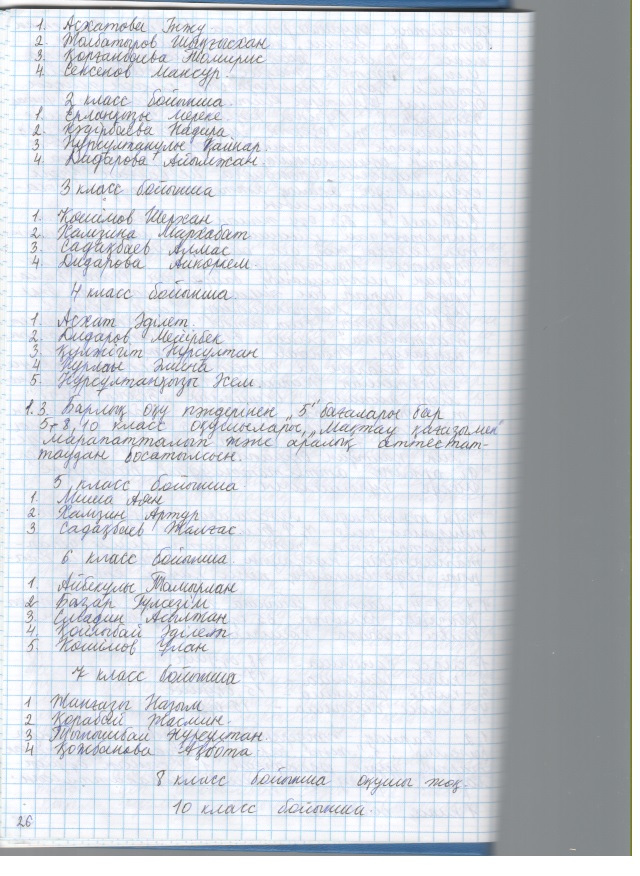 1. Асхатова Інжу.
2 Жолатыров Шыңғысхан
3. Қорғанбаева Томирис
4. Сексенов Мансур.
2 класс бойынша.
1. Ерланқызы Мереке.
2. Құдірбаева Надира.
3 Нурсұлтанұлы Қаһар.
4. Дидарова Айымжан.
3 класс бойынша
1. Қошімов Шерхан
2. Хамзина Мархабат
3. Садақбаев Алмас
4 Дидарова Аикоркем.
4 класс бойынша
1 Асхат Әділет.
2. Дидаров Мейірбек
3. Құлжігіт Нұрсултан
4 Нурлан Әмина
5. Нурсултанқызы Әсем.
1.3. Барлық оқу пәндерінен „5" бағалары бар
5-8, 10 класс оқушылары „Мақтау қағазымен"
марапатталып және аралық аттестат-
таудан босатылсын.
5 класс бойынша
1. Аян
2 Хамзин Артур
3 Садақбаев Жалғас.
6 класс бойынша
1. Айбекулы Томырлан
2 Базар Гүлсезім
3. Асылтан
4. Қойлыбай Әділет
5. Кошімов Ұлан
7 класс бойынша
1 Жанғазы Назым
2 Қорабай Жасмин.
3 Тынышбай Нурсултан.
4 Қожбанова Ақбота
8 класс бойынша оқушы жоқ.
10 класс бойынша.
26